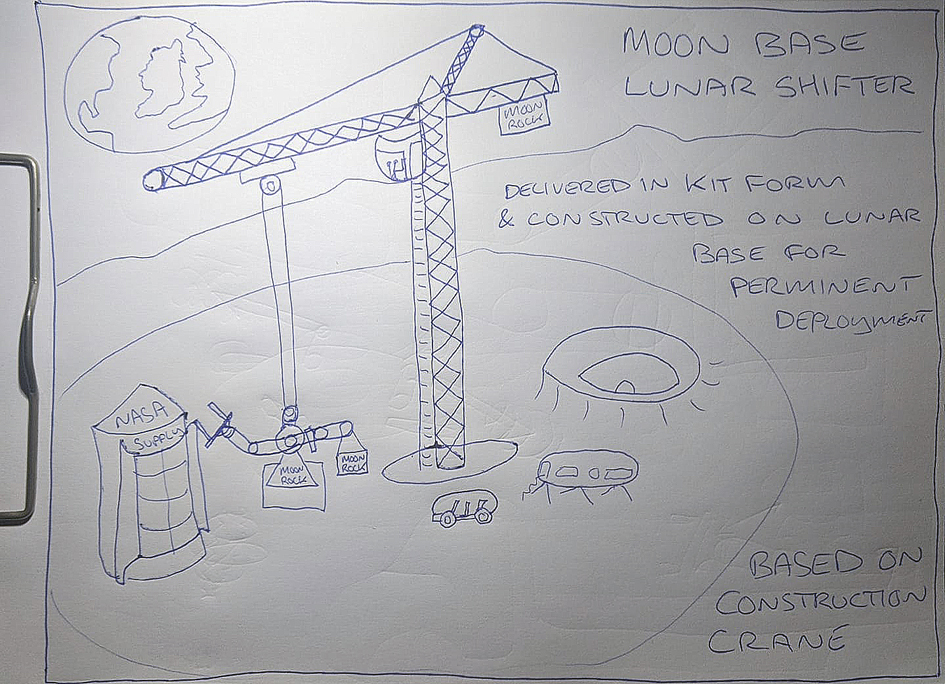 MOON BASE
LUNAR SHIFTER
MOON
ROCK
DELIVERED IN KIT FORM
& CONSTRUCTED ON LUNAR
BASE FOR
PERMINENT
DEPLOYMENT
NASA
SUPPLY
MOON
ROCK
MOON
ROCK
BASED ON
CONSTRUCTION
CRANE